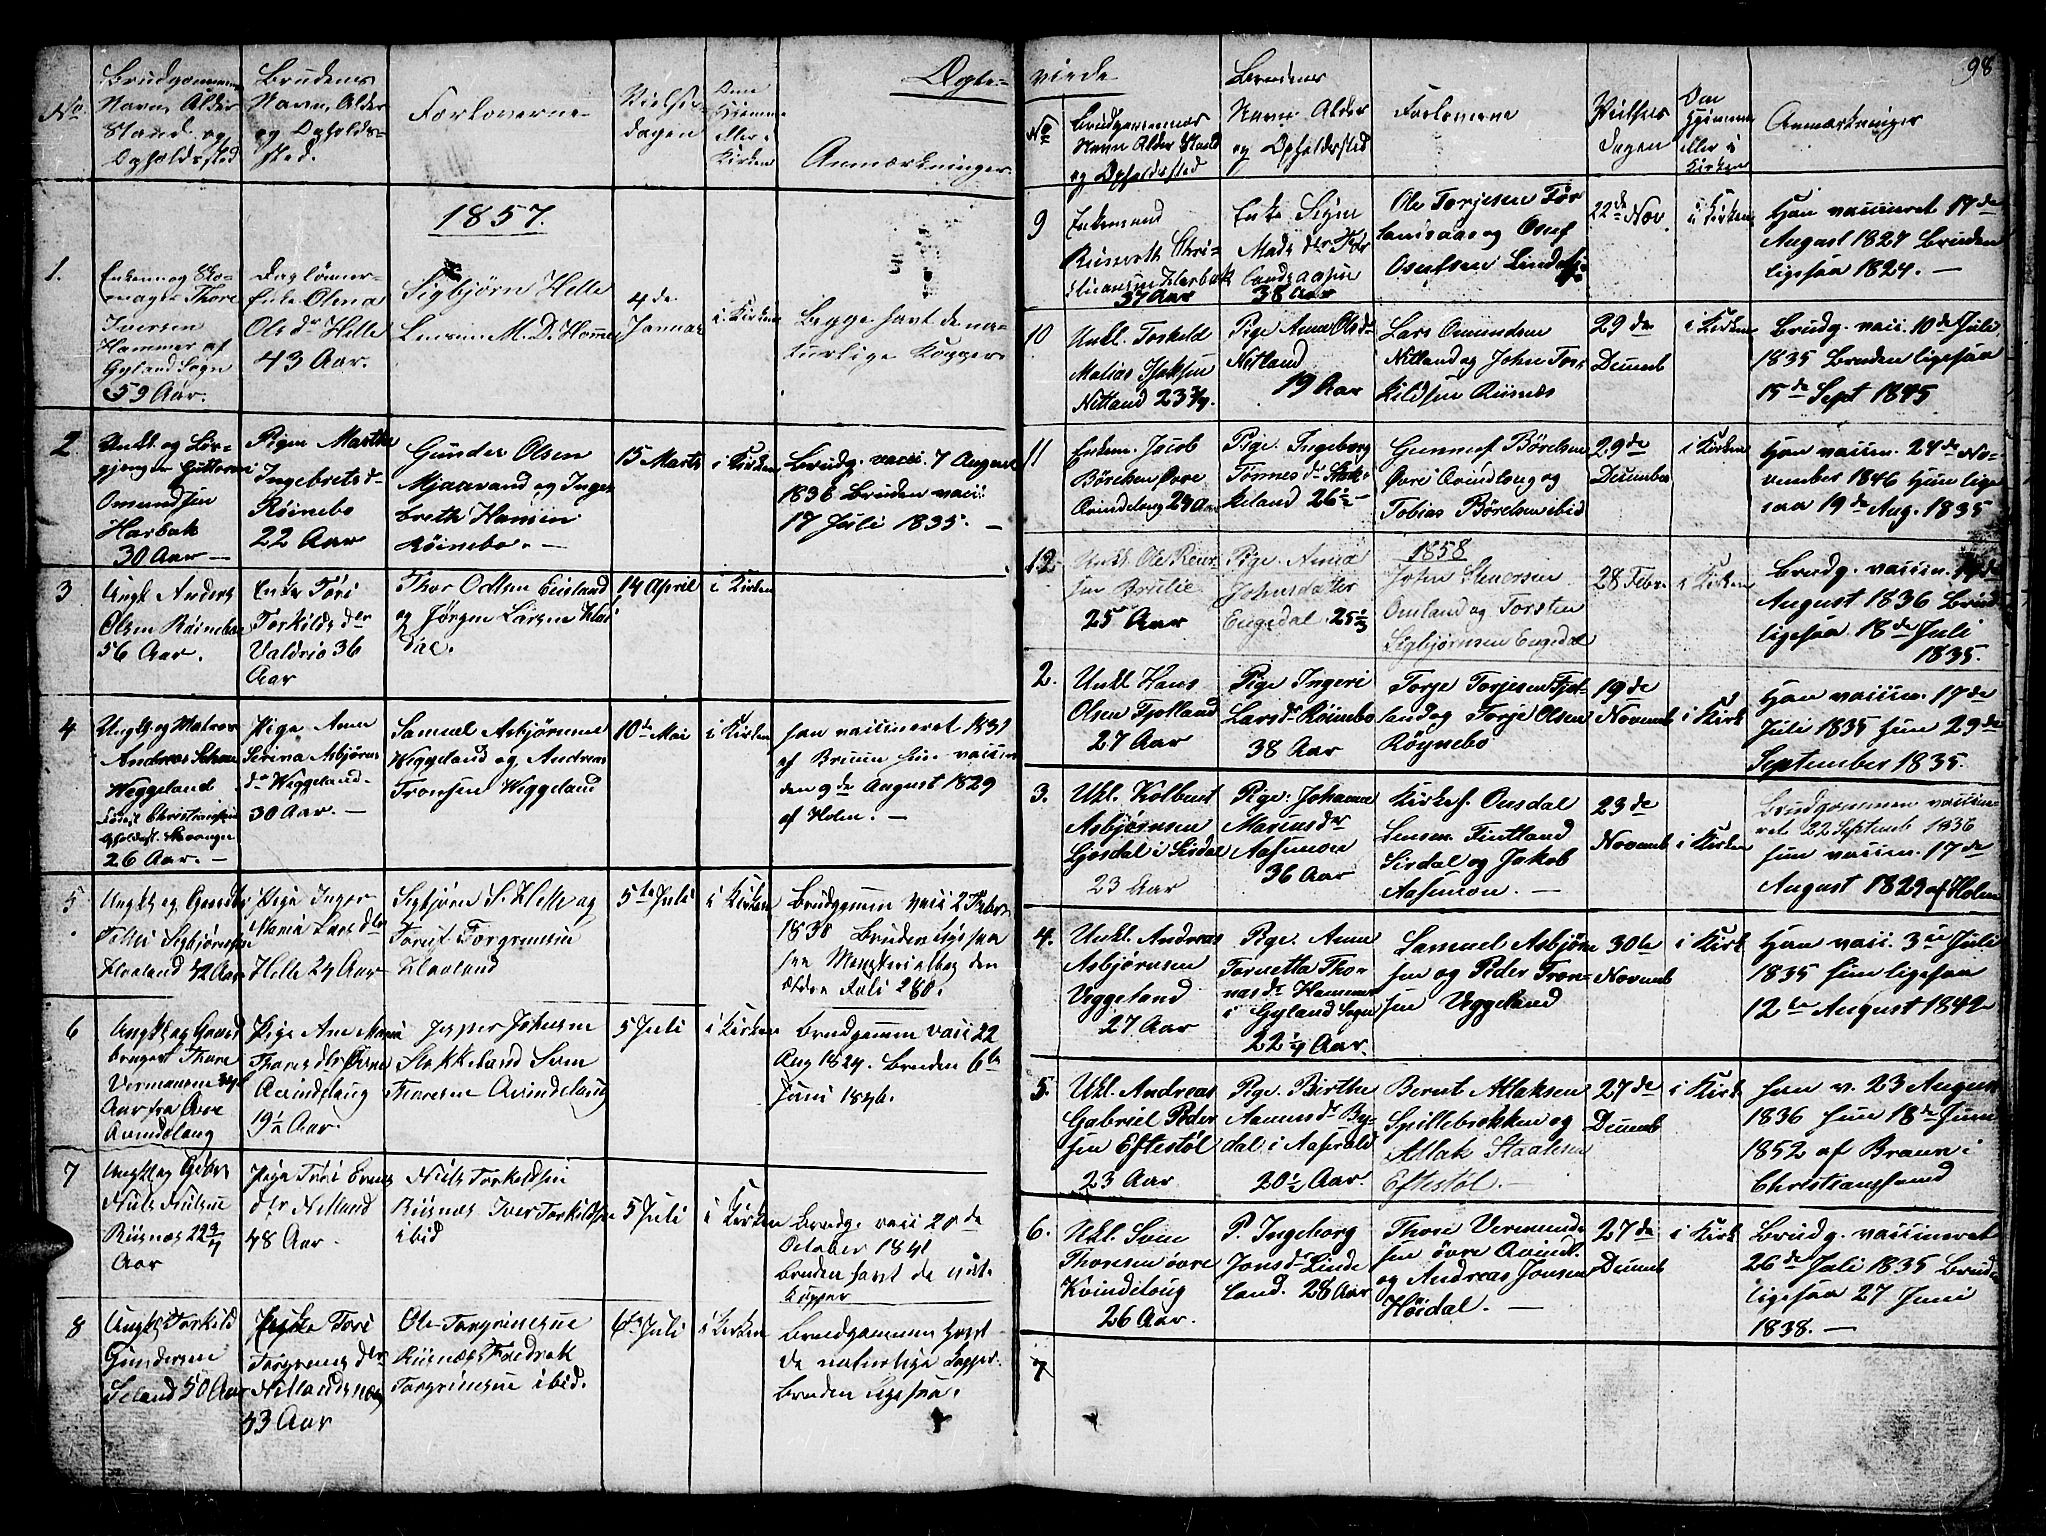 Ægte-
No.
Brudgommens
Navn, Alder
Stand og
Opholdssted
Brudens
Navn, Alder
og Opholds-
sted.
Forloverne
Vielses
dagen
Om
Hjemme
eller i
Kirken
Anmærkninger
1857.
1.
Enkem og Sko-
mager Thore
Iversen
Hammer af
Gyland Sogn
59 Aar.
Daglønner-
Enke Olena
Ols dr Helle
43 Aar.
Sigbjørn Helle
Lensm. M. D. Homme
4de
Januar
i Kirken
Begge havt de na-
turlige Kopper
2.
Unkl. og Lør-
gjenger Gutterm
Omundsen
Harbak
30 Aar —
Pigen Marthe
Ingebrets d-
Røinebo
22 Aar
Gunder Olsen
Mjaavand og Inge-
breth Hansen
Røinebo. —
15 Marts
i Kirken
Brudg. vacc. 7 August
1836 Bruden vacc.
17 Juli 1835. —
3
Ungk. Anders
Olsen Røinebo
56 Aar.
Enke Tøri
Torkilds der
Valdrio 36
Aar
Thor Odtsen Eeisland
og Jørgen Larsen Kloi
dal.
14 April
i Kirken
4
Ungk. og Matros
Andreas
Weggeland
Christiansen
26 Aar. —
Pige Anne
Serina Asbjørns
dr Weggeland
30 Aar. —
Samuel Asbjørnsen
Weggeland og Andreas
Tronsen Weggeland
10de Mai
i Kirken
han vaccineret 1831
af Bruun hun vaccin
den 9de August 1829
af Holm. —
5
Ungk. og Gaardbr
Tellef Sigbjørnsen
Haaland 42 Aar
Pige Inger
Maria Lars dtr
Helle 24 Aar
Sigbjørn S. Helle og
Torris Torgrimsen
Haaland
5te Juli
i Kirken
Brudgomm vacc 2 Febr.
1838 Bruden ligesaa
see Ministerialbog den
ældre Folio 280.
6
Ungk. og Gaard
bruger Thore
Vermunsen
Aar fra Øvre
Avindlaug
Pige Ane Marie
Thores dtr Øvre
Avindslaug
19½ Aar.
Jesper Johnsen
Stakkeland Sven
Thoresen Avindslaug
5 Juli
i Kirken
Brudgomm vacc 22
Aug 1824. Bruden 6te
Juni 1846.
7
Ungk. og Gbr
Niels Nilsen
Risnæs 22¾
Aar
Pige Tøri Evens
dtr Netland
48 Aar.
Niels Torkeldsen
Risnæs Iver Torkildsen
ibid
5 Juli
i Kirken
Brudg. vacc 20de
October 1841
Bruden havt de nat.
Kopper
8
Ungk. Torkild
Gundersen
Seland 50 Aar
Pige Tori
Torgrims der
Netlandsnæs
43 Aar
Ole Torgrimsen
Risnæs Fredrik
Torgrimsen ibid.
6te Juli
i Kirken
Brudgommen havt
de naturlige Kopper.
Bruden ligesaa.
98
viede
No
Brudgommens
Navn Alder Stand
og Opholdssted
Brudens
Navn Alder
og Opholdssted
Forloverne
Vielses
Dagen
Om
Hjemme
eller i
Kirken
Anmærkninger
9
Enkemand
Kristi-
ansen Harbak
37 Aar
Enke Signe
Mads dtr Før
landsaasen
38 Aar
Ole Torjesen Før
lansaas og Osuf
Osufsen Lindefj.
22de Nov.
i Kirken
Han vaccineret 17de
August 1827 Bruden
ligesaa 1824. —
10
Unkl. Torkeld
Matias Isaksen
Nitland 23¾.
Pige Anne Ols dr
Nitland
19 Aar
Lars Omundsen
Nitland og John Tor-
kildsen Risnæs
29 de
Decemb
i Kirken
Brudg. vacc. 10de Juli
1835 Bruden ligesaa
15de Sept 1845
11
Enkem. Jacob
Børelsen Øvre
Qvindelaug 29 Aar
Pige. Ingeborg
Tønnes dr Stak-
keland 26½ —
Gunnuf Børelsen
Øvre Qvindlong og
Tobias Børelsen ibid
29de
December
i Kirken
Han vaccin. 24de No-
vember 1846 Hun lige
saa 19de Aug. 1835
1858
12
Unkl. Ole Reiers
sen Brulie
25 Aar
Pige. Anna
Johnsdatter
Engedal. 25⅓
John Stenersen
Omland og Torsten
Sigbjørnsen Engedal
28 Febr.
i Kirken
Brudg. vaccin. 17de
August 1836 Brud.
ligesaa 18de Juli
1835.
2.
Unkl Hans
Olsen Fjolland
27 Aar
Pige Ingeri
Lars dr Røinebo
38 Aar
Torje Torjesen Fjol-
land og Torje Olsen
Røynebo
19 de
Novemb
i Kirk
Han vaccin. 17de
Juli 1835 hun 29de
September 1835.
3.
Ukl. Kolbent
Asbjørnsen
Ljosdal i Sirdal
23 Aar
Pige. Johanne
Marcus dr
Aasemon
36 Aar
Kirkes. Ousdal
Lensm. Fintland
Sirdal og Jakob
Aasemon. —
23 de
Novemb
i Kirken
Brudgommen vaccine
ret 22 Septemb 1836
hun vaccin. 17de
August 1829 af Holm
4.
Unkl. Andreas
Asbjørnsen
Veggeland
27 Aar
Pige. Anne
Tornetta Tho-
nas dr Hammer
i Gyland Sogn
22¼ Aar.
Samuel Asbjørn
sen og Peder Tron-
sen Veggeland
30te
Novemb
i Kirk
Han vacc. 3die Juli
1835 hun ligesaa
12te August 1842
5.
Ukl. Andreas
Gabriel Peder
sen Eftestøl
23 Aar
Pige. Birthe
Aanens dr By-
dal i Aaserald
20½ Aar.
Bernt Atlaksen
Spillebrokken og
Atlak Staalesen
Eftestøl. —
27 de
Decemb
i Kirk
han v. 23 August
1836 hun 18de Juni
1852 af Braun i
Christiansand
6.
Ukl. Sven
Thoresen øvre
Kvindeloug
26 Aar.
P. Ingeborg
Jons dr Linde
land. 28 Aar
Thore Vermunds
sen øvre Qvindl.
og Andreas Jonsen
Høidal. —
27 de
Decemb
i Kirk
Brudg. vaccineret
26de Juli 1835 Bruden
ligesaa 27 Juni
1838. —
7